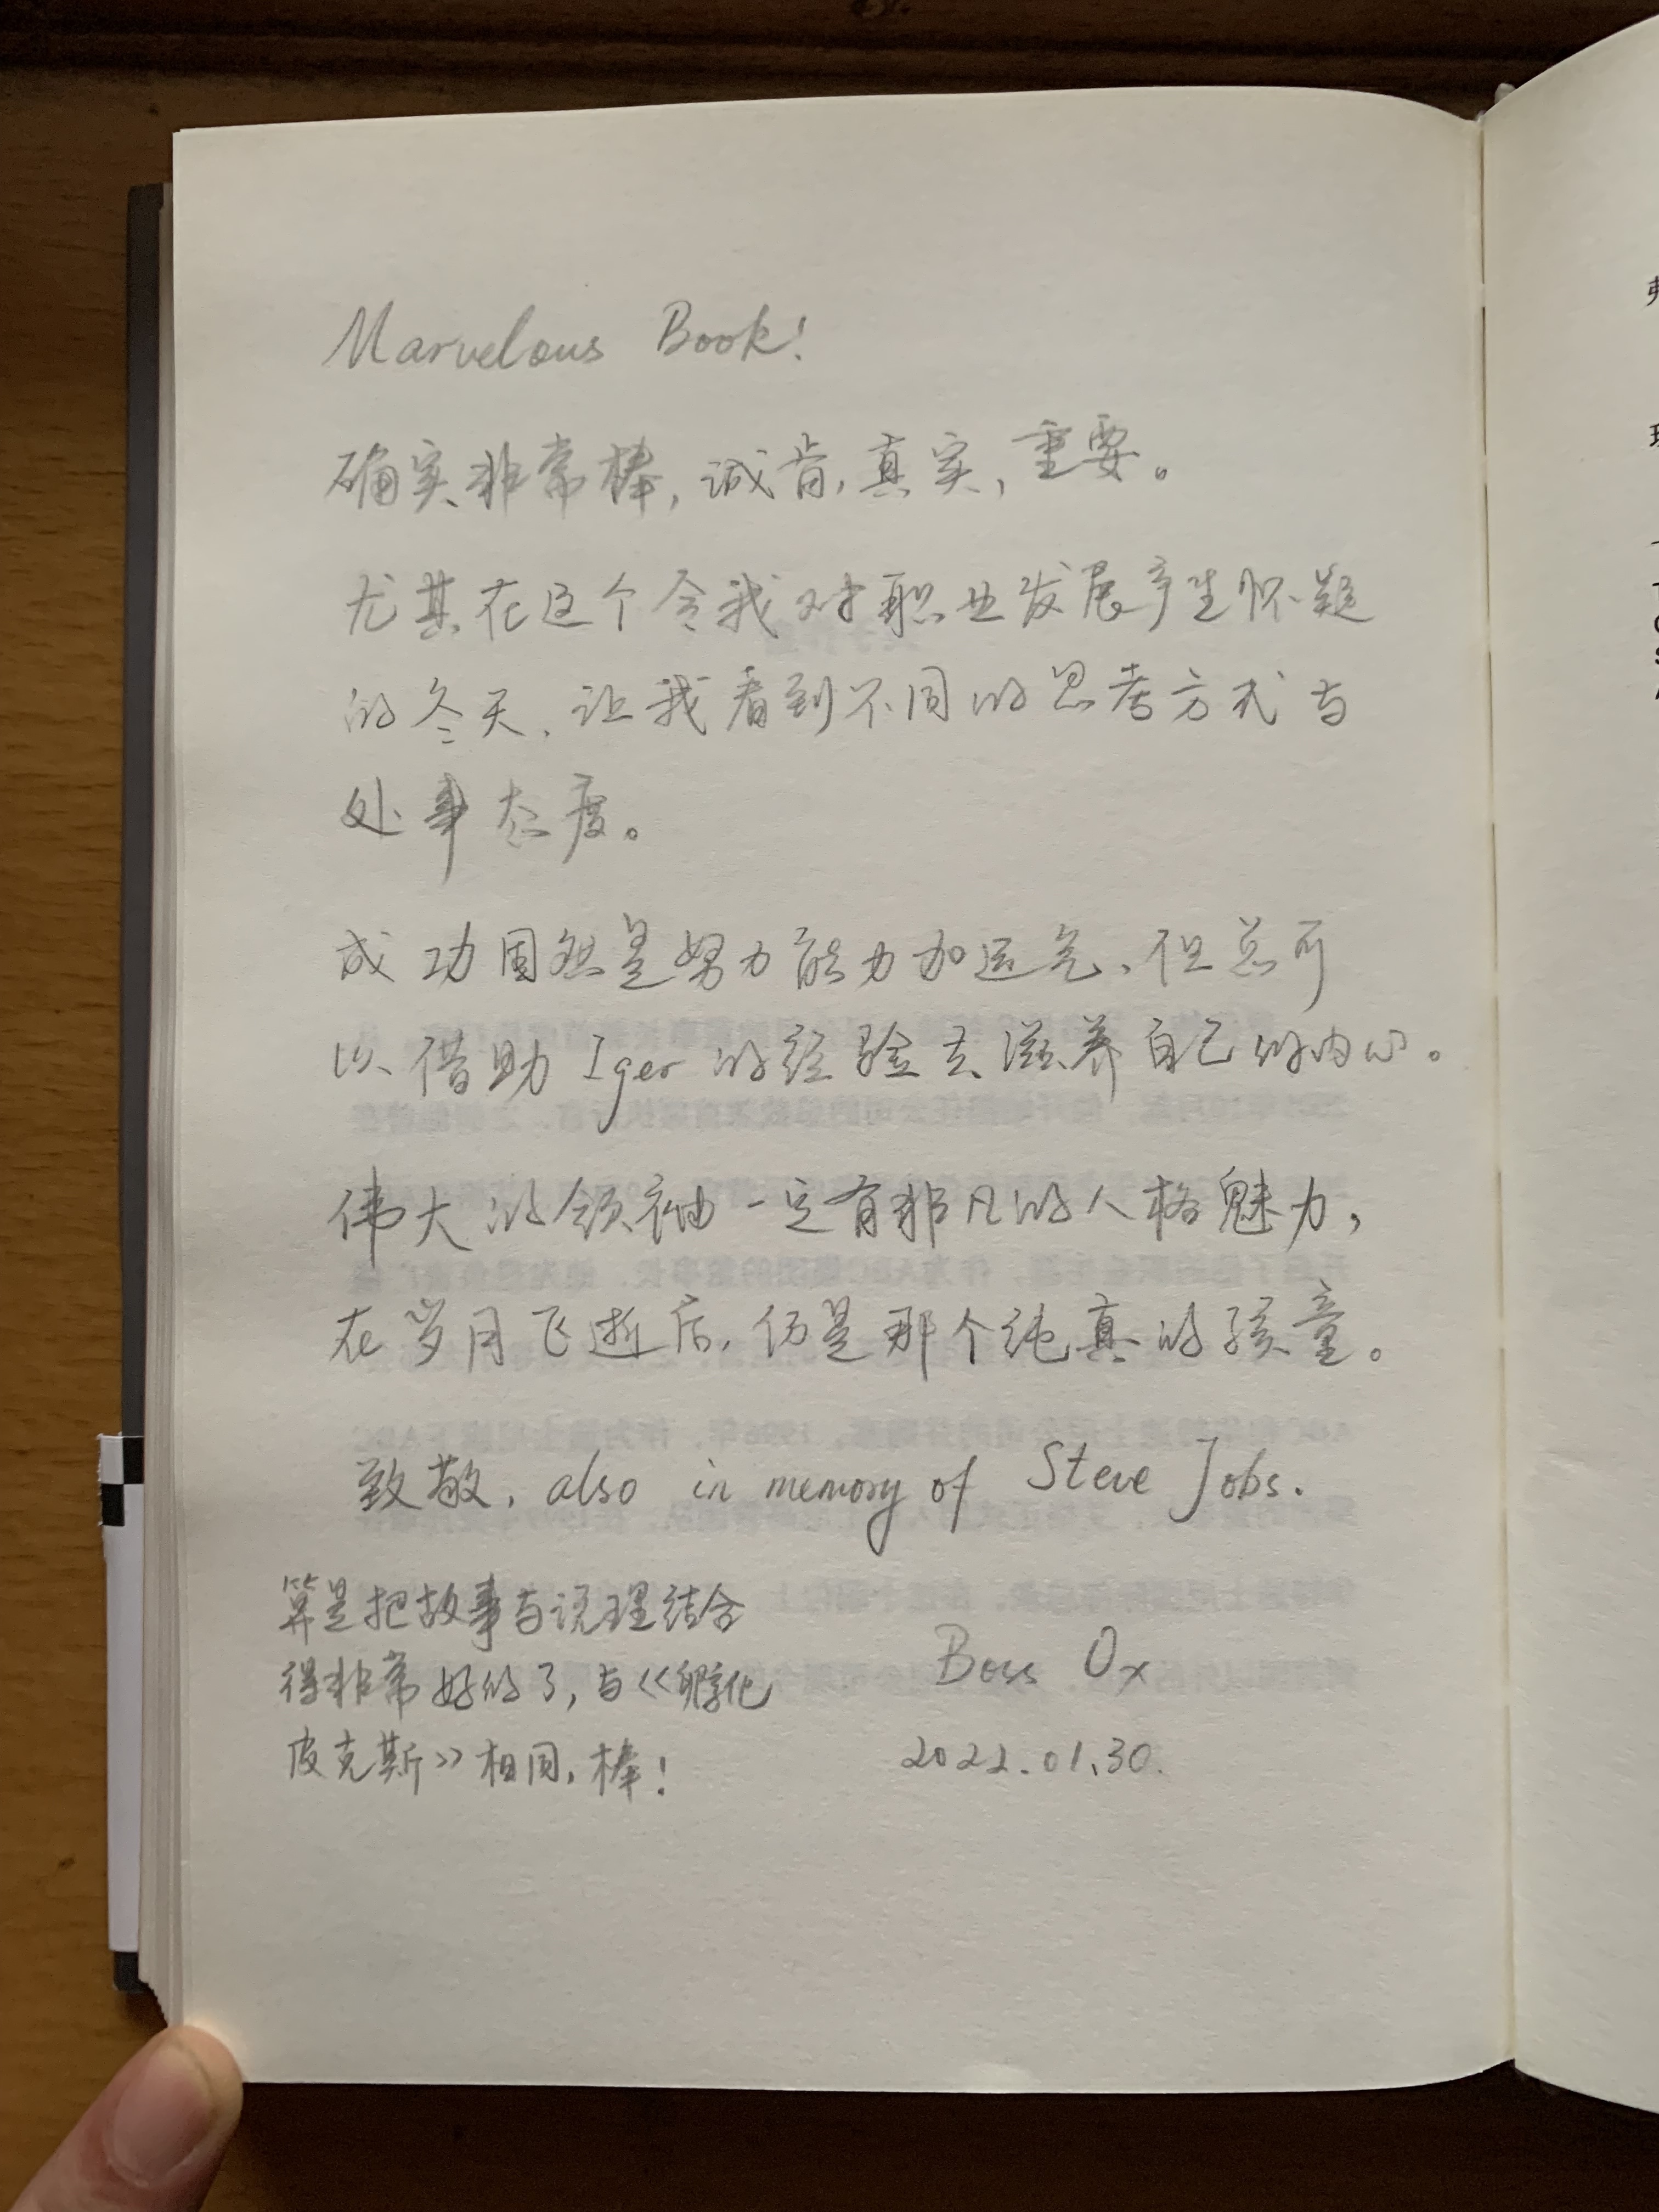 Marvelous Book!
确实非常棒，诚肯，真实，重要。
尤其在这个令我对职业发展产生怀疑
的冬天，让我看到不同的思考方式与
处事态度。
成功固然是努力能力加运气，但总可
以借助 Iger 的经验去滋养自己的内心。
伟大的领袖一定有非凡的人格魅力，
在岁月飞逝后，仍是那个纯真的孩童。
致敬，also in memory of Steve Jobs.
算是把故事与说理结合
得非常好的了，与《孵化
皮克斯》相同，棒！
Boss Ox
2022.01.30.